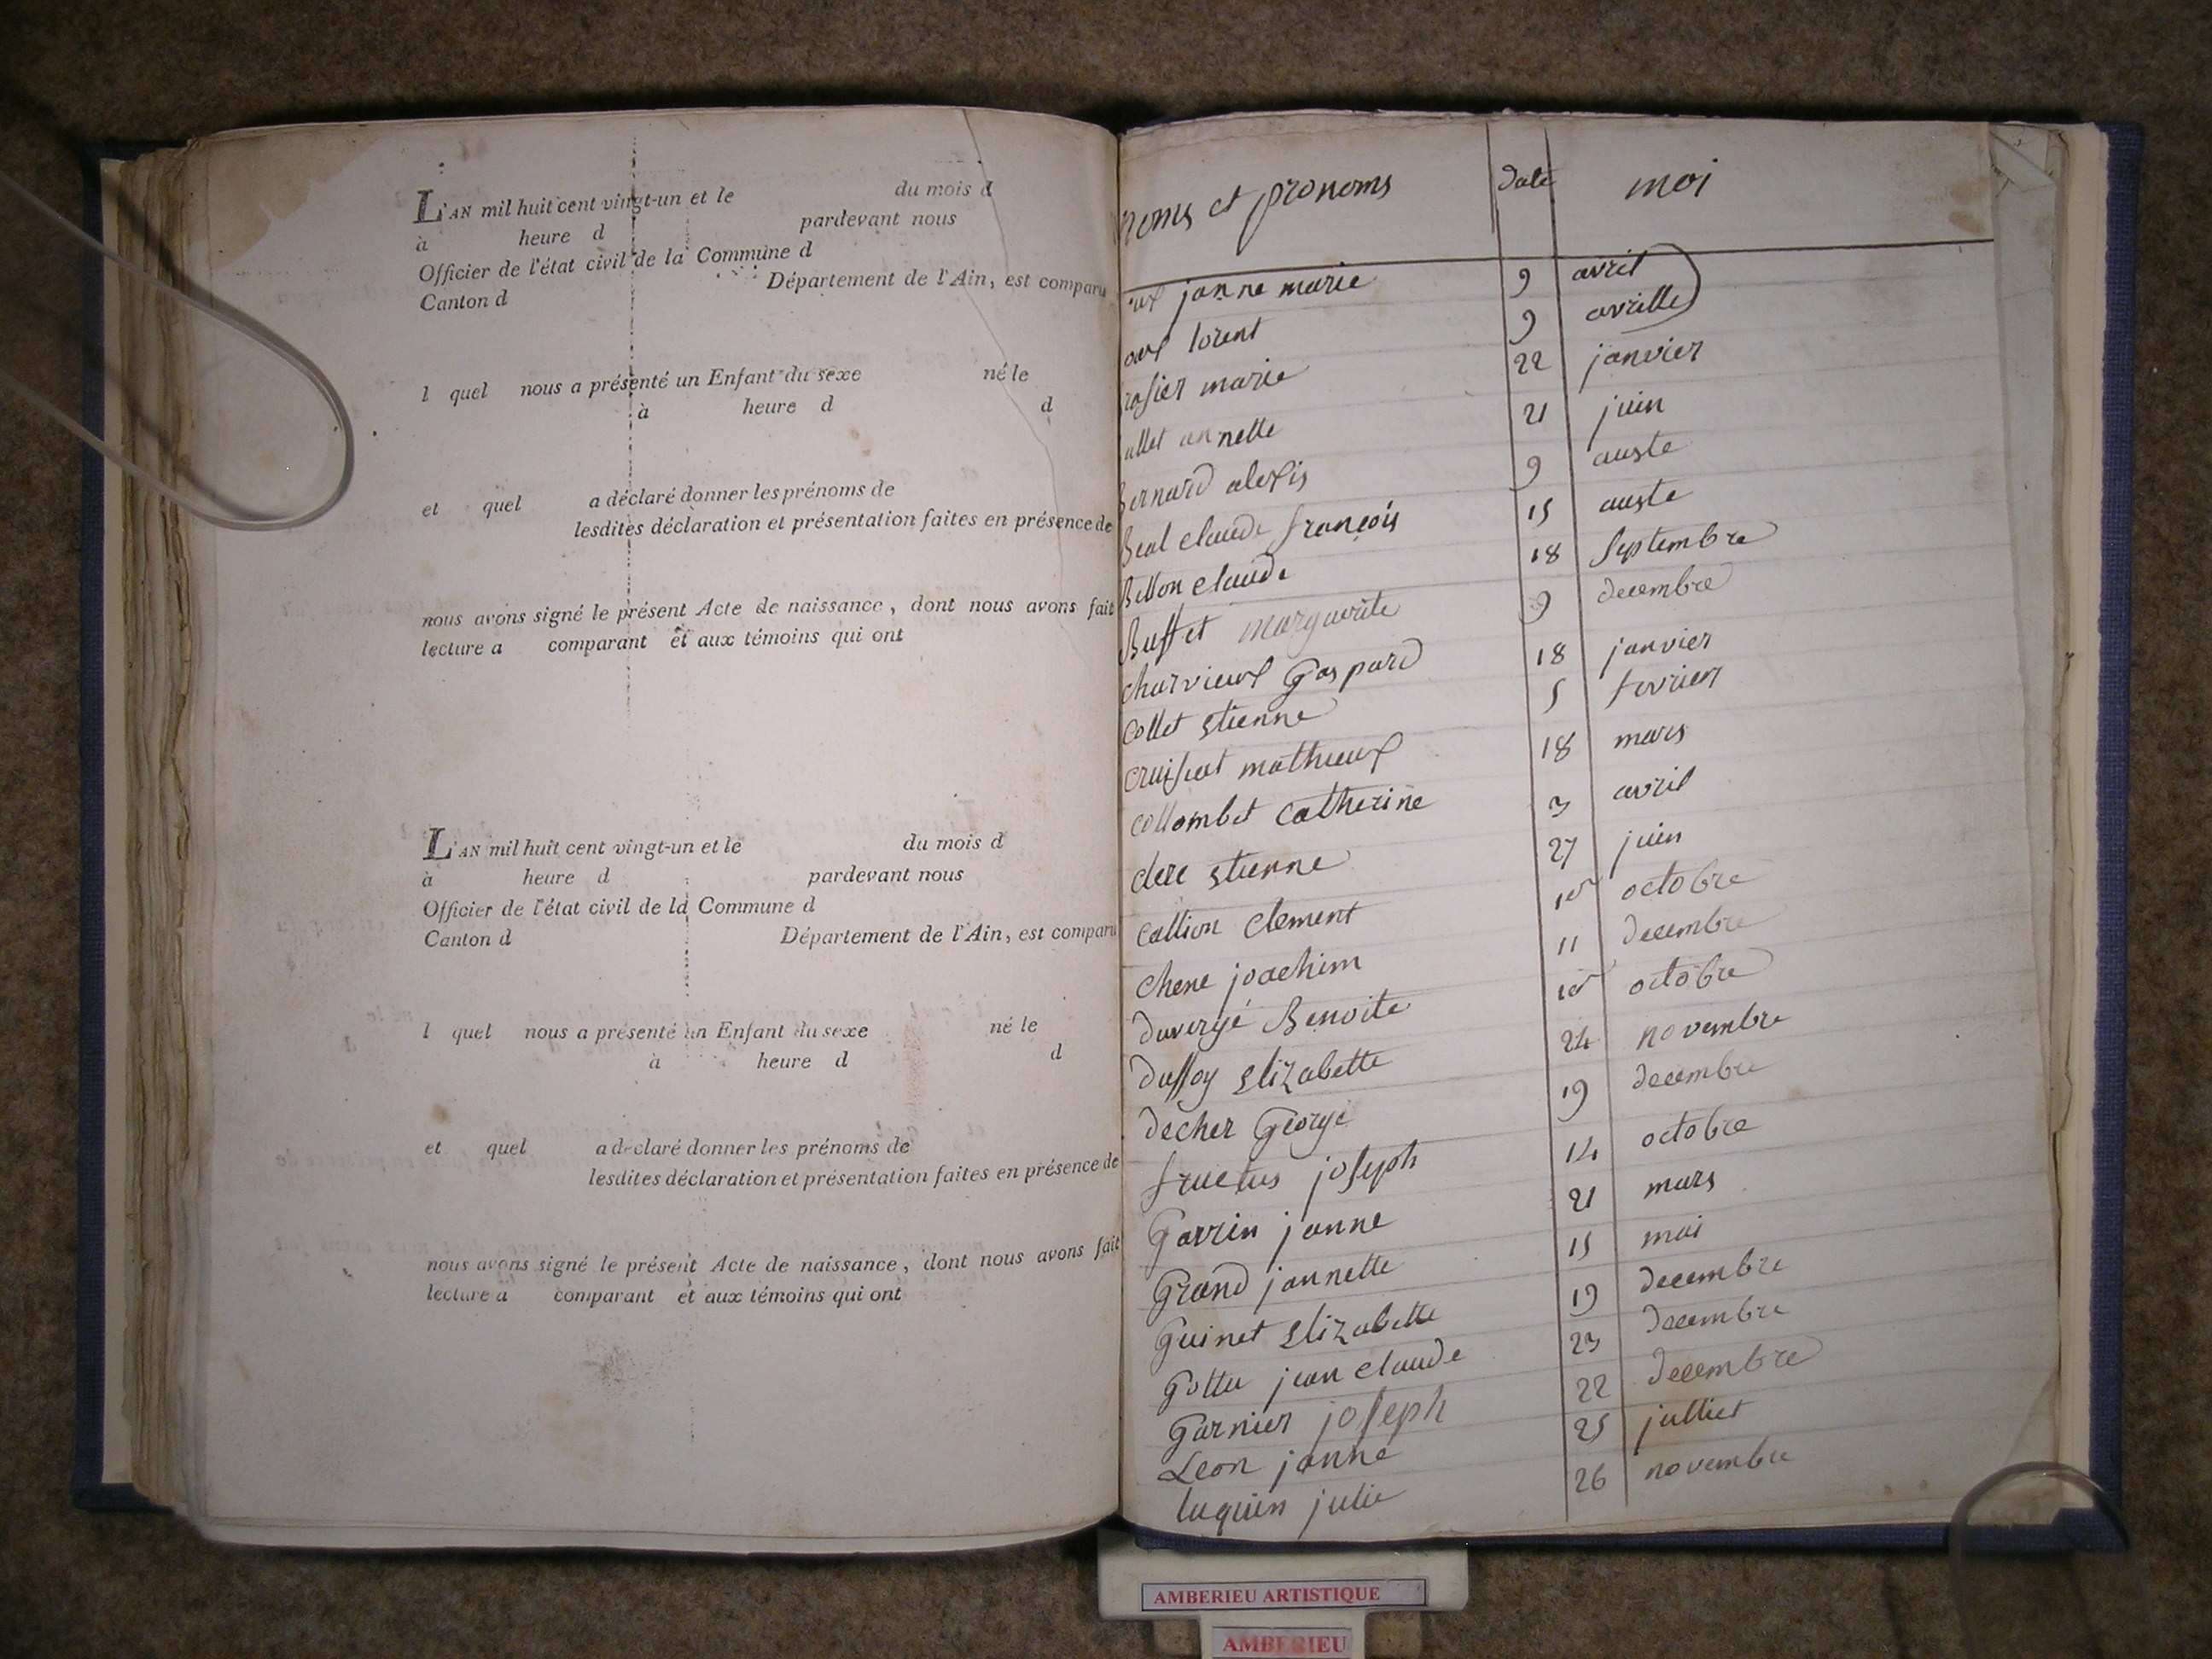 L'AN mil huit cent vingt-un et le du mois d
à heure d pardevant nous
Officier de l'état civil de la Commune d
Canton d Département de l'Ain, est comparu
l quel nous a présenté un Enfant du sexe né le
à heure d d
et quel a déclaré donner les prénoms de
lesdites déclaration et présentation faites en présence de
nous avons signé le présent Acte de naissance, dont nous avons fait
lecture a comparant et aux témoins qui ont
L'AN mil huit cent vingt-un et le du mois d
à heure d pardevant nous
Officier de l'état civil de la Commune d
Canton d Département de l'Ain, est comparu
l quel nous a présenté un Enfant du sexe né le
à heure d d
et quel a déclaré donner les prénoms de
lesdites déclaration et présentation faites en présence de
nous avons signé le présent Acte de naissance, dont nous avons fait
lecture a comparant et aux témoins qui ont
noms et pronoms date moi
janne marie 9 avril
lorent 9 avrille
marie 22 janvier
annette 21 juin
Bernard alexis 9 auste
Beal claude françois 15 auste
Billon claude 18 septembre
Buffet marguerite 9 decembre
charvieux Gaspard 18 janvier
collet etienne 5 fevrier
cruisiat mathieux 18 mars
collombet catherine 3 avril
clere etienne 27 juin
callion clement 10 octobre
chene joachim 11 decembre
duvergé Benoite 10 octobre
duffoy elizabette 24 novembre
decher George 19 decembre
fructus joseph 14 octobre
Gavrin janne 21 mars
Grand jannette 15 mai
Guinet elizabette 19 decembre
Gottu jean claude 23 decembre
Garnier joseph 22 decembre
Leon janne 25 julliet
luquin julie 26 novembre
AMBERIEU ARTISTIQUE
AMBERIEU